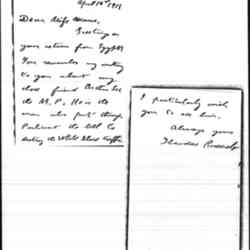 April 10th 1919
Dear Miss
Greetings on
your return from Egypt!
You remember my writing
to you about my
dear friend Arthur Lee
the M.P. He is the
man who put through
Parliament the bill to
the White Slave traffic
I particularly wish
you to see him.
Always yours
Theodore Roosevelt